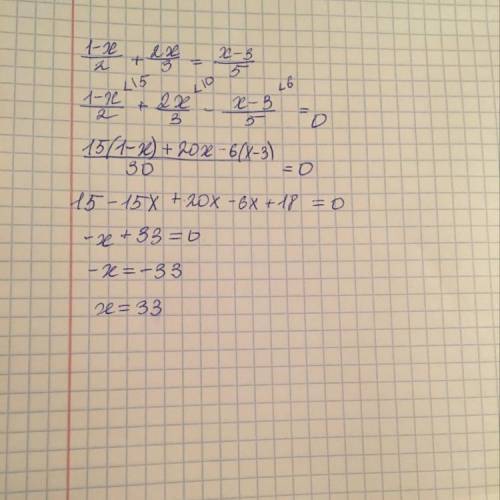 (1-x)/2 + 2x/3 = (x-3)/5
(1-x)/2 ∟15 + 2x/3 ∟10 - (x-3)/5 ∟6 = 0
(15(1-x)+20x-6(x-3))/30 = 0
15-15x+20x-6x+18=0
-x+33=0
-x=-33
x=33